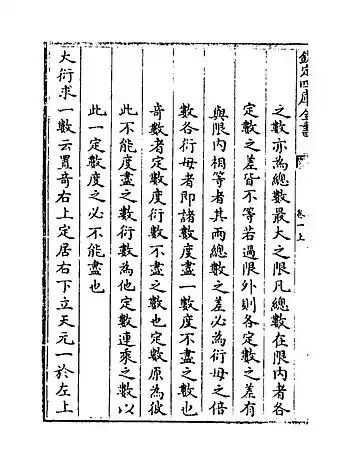 欽定四庫全書
卷一上
之數亦為總數最大之限凡總數在限内者各
定數之差皆不等若過限外則各定數之差有
與限内相等者其兩總數之差必為衍母之倍
數各衍母者即諸數度盡一數度不盡之數也
奇數者定數度衍數不盡之數也定數原為彼
此不能度盡之數衍數為他定數連乘之數以
此一定數度之必不能盡也
大衍求一數云置奇右上定居右下立天元一於左上